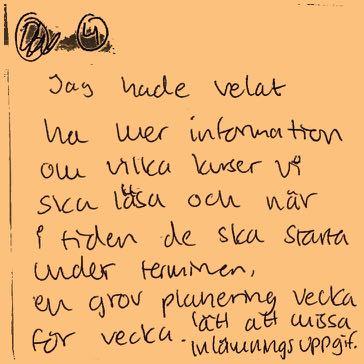 Jag hade velat
ha mer information
om vilka kurser vi
ska läsa och när
i tiden de ska starta
under terminen,
en grov planering vecka
för vecka. lätt att missa
inlämningsuppgift.